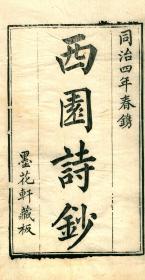 同治四年春鐫
西園詩鈔
墨花軒藏板